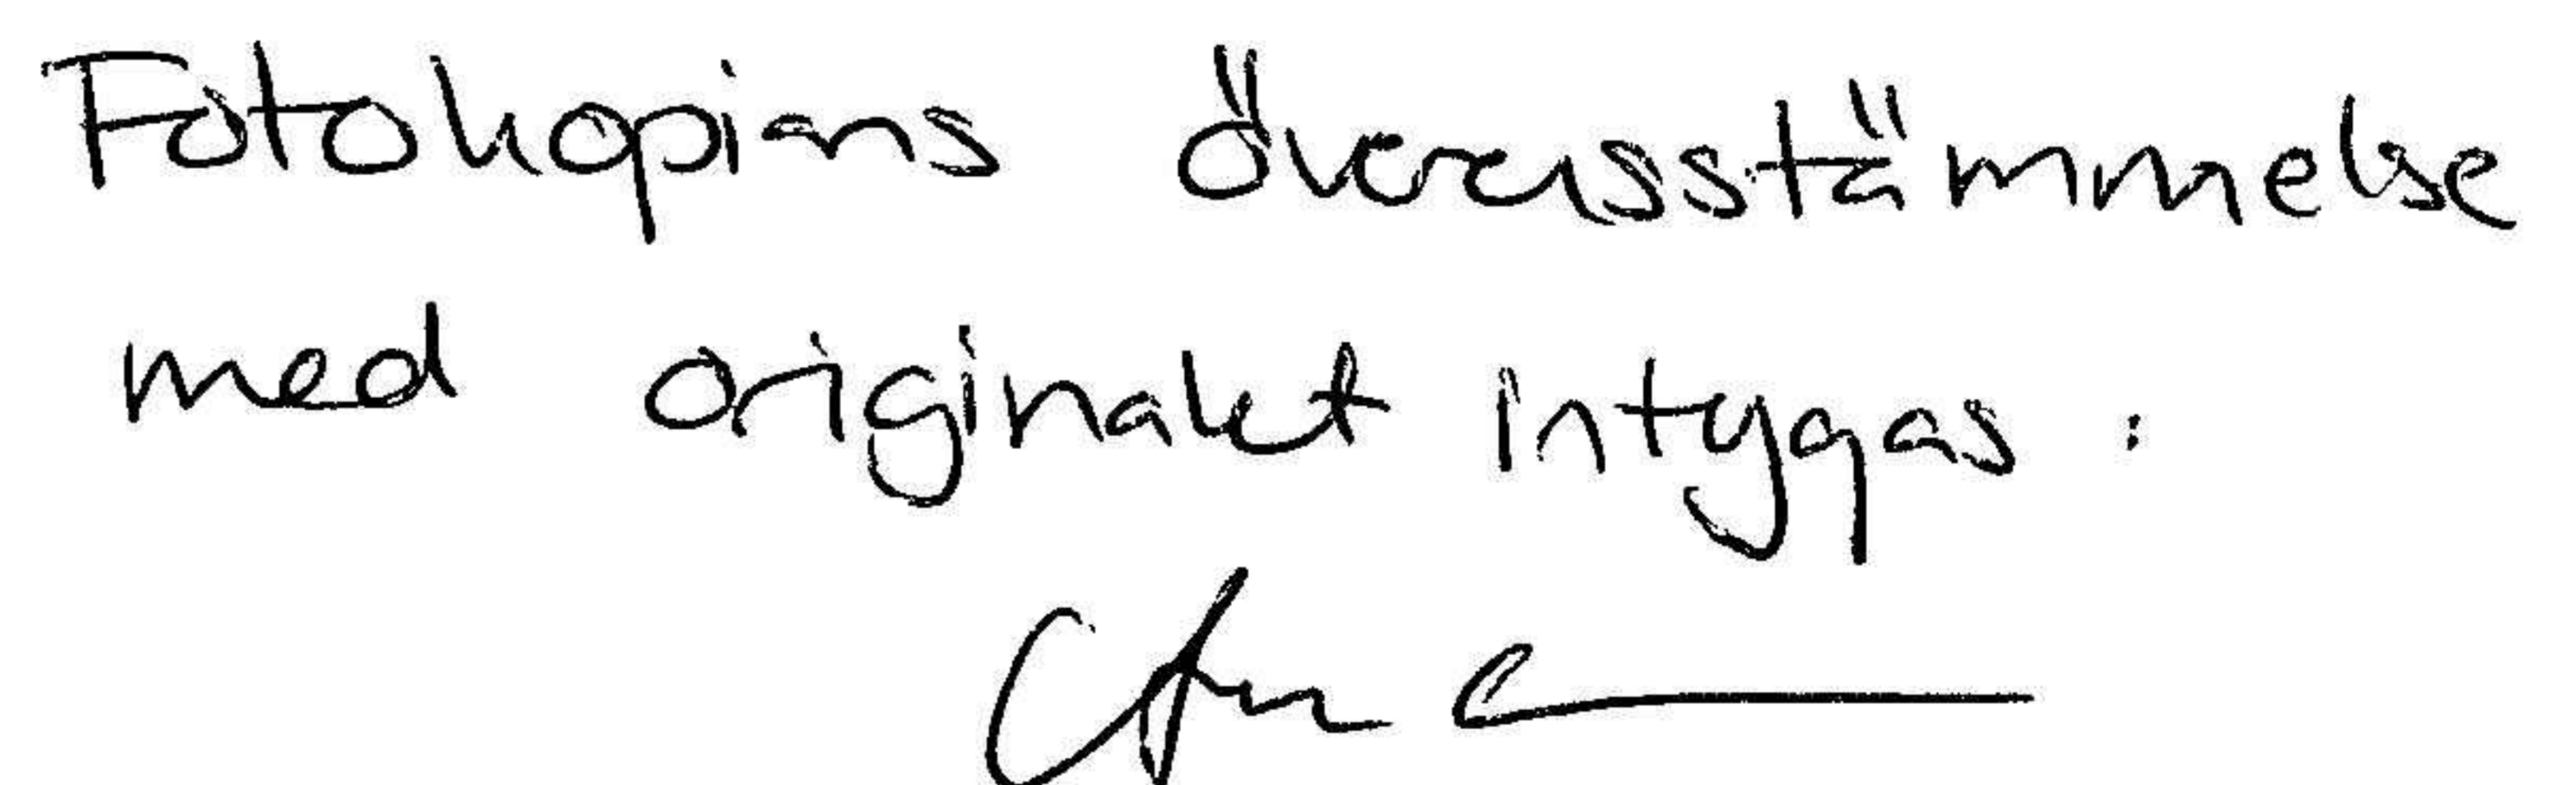 Fotokopians överensstämmelse
med originalet intygas :